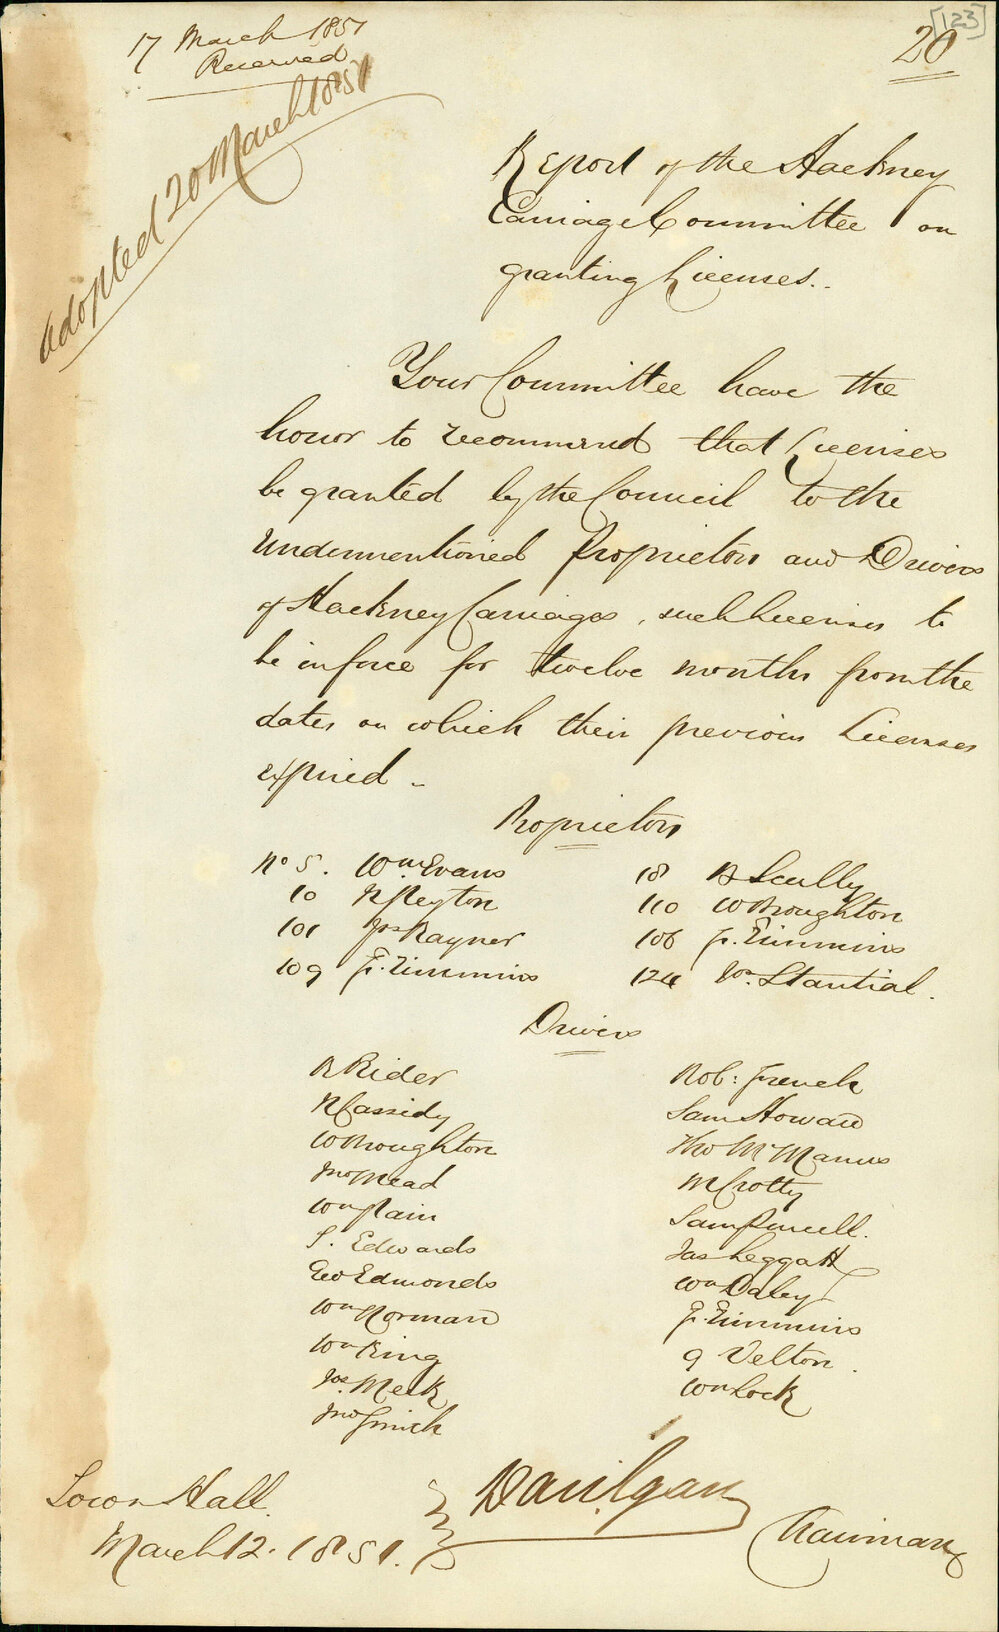 [123]
20
17 March 1851
Received
Adopted 20 March 1851
Report of the Hackney
Carriage Committee on
granting Licenses.
Your Committee have the
honor to recommend that Licenses
be granted by the Council to the
undermentioned Proprietors and Drivers
of Hackney Carriages, such Licenses to
be in force for twelve months from the
dates on which their previous Licenses
expired -
Proprietors
No 5. Wm Evans 18 B Scully
10 N Peyton 110 W Broughton
101 Jas Rayner 106 J. Timmins
109 J. Timmins 124 Jos. Stantial.
Drivers
R Rider Rob: French
N Cassidy Sam Howard
W Broughton Tho McManus
Jno Mead M Crotty
Wm Pain Sam Purcell.
S. Edwards Jas Leggatt
Geo Edmonds Wm Daley
Wm Norman J. Timmins
Wm King G Velton.
Jos. Meek Wm Lock
Jno Smith
Town Hall.
March 12. 1851.
Danl Egan
Chairman